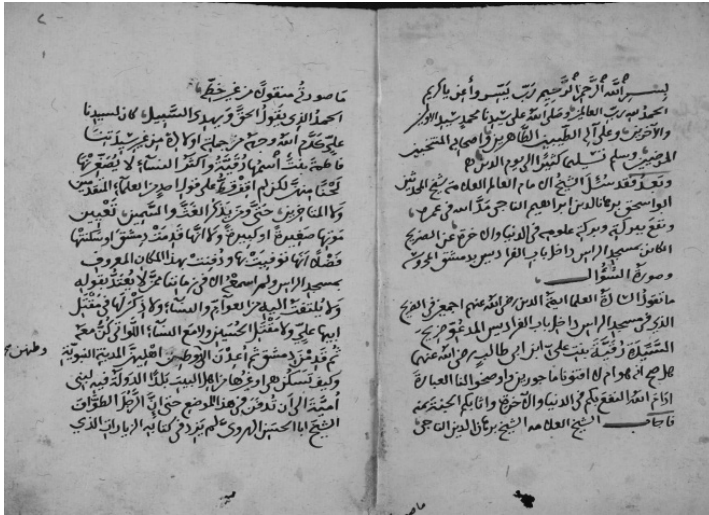 بسم الله الرحمن الرحيم رب يسر وأعن يا كريم
الحمد لله رب العالمين وصلى الله على سيدنا محمد سيد الأولين
والآخرين وعلى آله الطيبين الطاهرين وأصحابه المنتخبين
المرضيين وسلم تسليما كثيرا إلى يوم الدين
وبعد فقد سئل الشيخ الامام العالم العلامة شيخ المحدثين
ابو اسحق برهان الدين ابراهيم الناجي مد الله في عمره
ونفع ببركته وبركة علومه في الدنيا والاخرة عن الضريح
الكائن بمسجد الراس داخل باب الفراديس بدمشق المحروسة
وصورة السؤال
ما تقول السادة العلماء ايمة الدين رضي الله عنهم اجمعين في الضريح
الذي في مسجد الراس داخل باب الفراديس المدعو ضريح
السيدة رقية بنت علي ابن ابي طالب رضي الله عنهما
هل صح انه هو ام لا افتونا ماجورين واوضحوا لنا العبارة
ادام الله النفع بكم في الدنيا والآخرة واثابكم الجنة بمنه
فاجاب الشيخ العلامة الشيخ برهان الدين الناجي
ما صورته منقولا من غير خطه
الحمد لله الذي يقول الحق ويهدي السبيل كان لسيدنا
علي كرم الله وجهه من جملة اولاده من غير سيدتنا
فاطمة بنت اسمها رقية واكثر النساء لا يصغرنها
لكنها منهن لكن لم اقف على قول احد من العلماء المتقدمين
ولا المتاخرين حتى ومن يذكر الغث والسمين تعيين
موتها صغيرة او كبيرة ولا انها قدمت دمشق او سكنتها
فضلا انها توفيت بها ودفنت بهذا المكان المعروف
بمسجد الراس ولم اسمع الا في زماننا من لا يعتد بقوله
ولا يلتفت اليه من العوام والنساء ولا ذكر لها في مقتل
ابيها علي ولا مقتل الحسين ولا مع النساء اللواتي كن معه
ثم قدمن دمشق ثم اعدن الى وطن اهلهن المدينة النبوية
وكيف يسكن هي او غيرها من اهل البيت بلد الدولة فيه لبني
امية الى ان تدفن في هذا الموضع حتى ان الرجل الطواف
الشيخ ابا الحسن الهروي لم يزد في كتابه الزيارات الذي